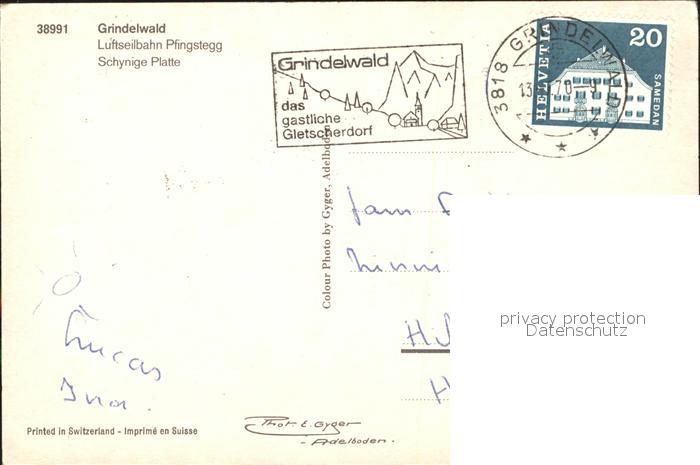 38991 Grindelwald
Luftseilbahn Pfingstegg
Schynige Platte
Grindelwald
das
gastliche
Gletscherdorf
3818 GRINDELWALD
HELVETIA
20
SAMEDAN
Colour Photo by Gyger, Adelboden
Fam
privacy protection
Datenschutz
Phot. E. Gyger
- Adelboden.
Printed in Switzerland - Imprimé en Suisse